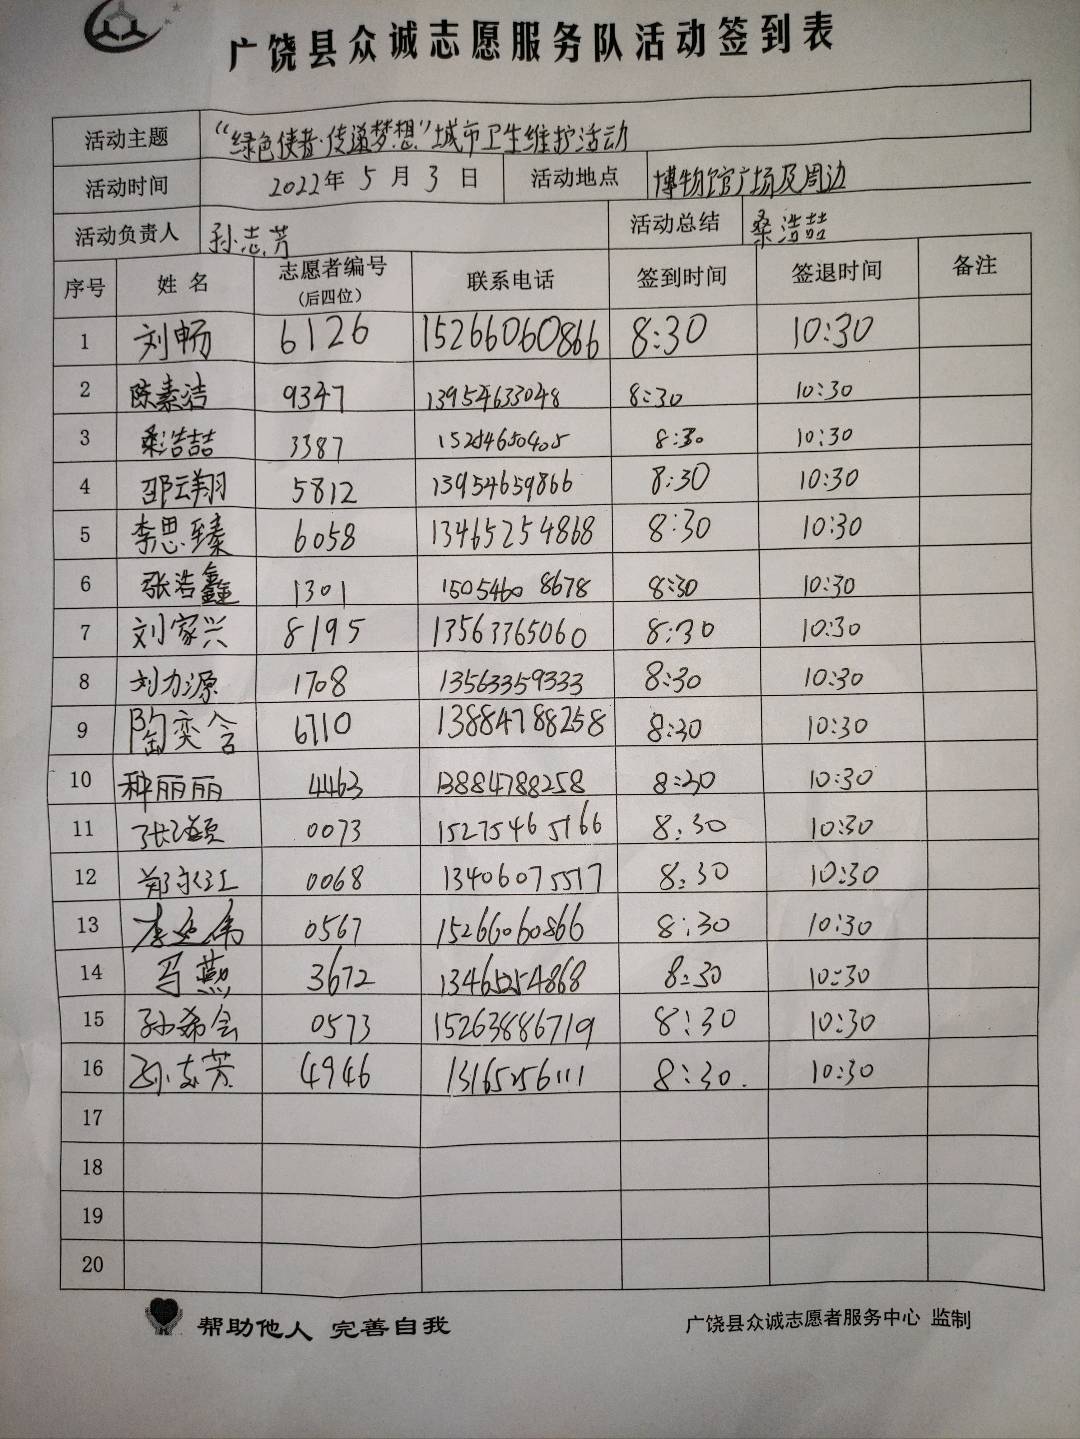 广饶县众诚志愿服务队活动签到表
活动主题 “绿色使者·传递梦想”城市卫生维护活动
活动时间 2022年 5 月 3 日 活动地点 博物馆广场及周边
活动负责人 孙志芳 活动总结 桑浩喆
序号 姓名 志愿者编号 (后四位) 联系电话 签到时间 签退时间 备注
1 刘畅 6126 15266060866 8:30 10:30
2 陈素洁 9347 13954633048 8:30 10:30
3 桑浩喆 3387 15254650405 8:30 10:30
4 邵云翔 5812 13954659866 8:30 10:30
5 李思臻 6058 13465254868 8:30 10:30
6 张浩鑫 1301 15054608678 8:30 10:30
7 刘家兴 8195 13563365060 8:30 10:30
8 刘力源 1708 13563359333 8:30 10:30
9 陶奕含 6710 13884788258 8:30 10:30
10 种丽丽 4463 13884788258 8:30 10:30
11 0073 15275465166 8:30 10:30
12 郑永江 0068 13406075517 8:30 10:30
13 李延伟 0567 15266060866 8:30 10:30
14 马燕 3672 13465254868 8:30 10:30
15 孙希会 0573 15263886719 8:30 10:30
16 孙志芳 4946 13165256111 8:30. 10:30
17
18
19
20
帮助他人 完善自我 广饶县众诚志愿者服务中心 监制